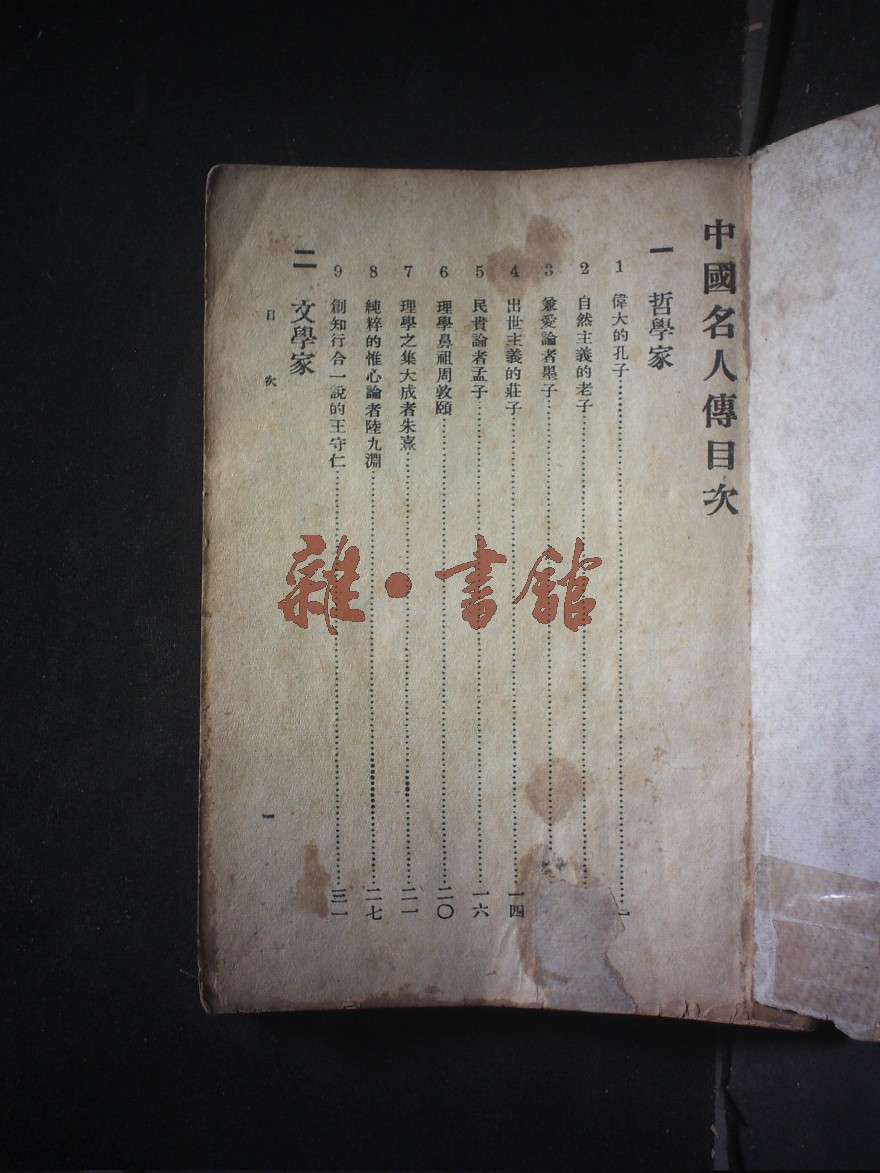 中國名人傳目次
一 哲學家
1 偉大的孔子…………一
2 自然主義的老子…………
3 兼愛論者墨子…………
4 出世主義的莊子…………一四
5 民貴論者孟子…………一六
6 理學鼻祖周敦頤…………二〇
7 理學之集大成者朱熹…………二一
8 純粹的惟心論者陸九淵…………二七
9 創知行合一說的王守仁…………三一
二 文學家
目次
一
雜·書館